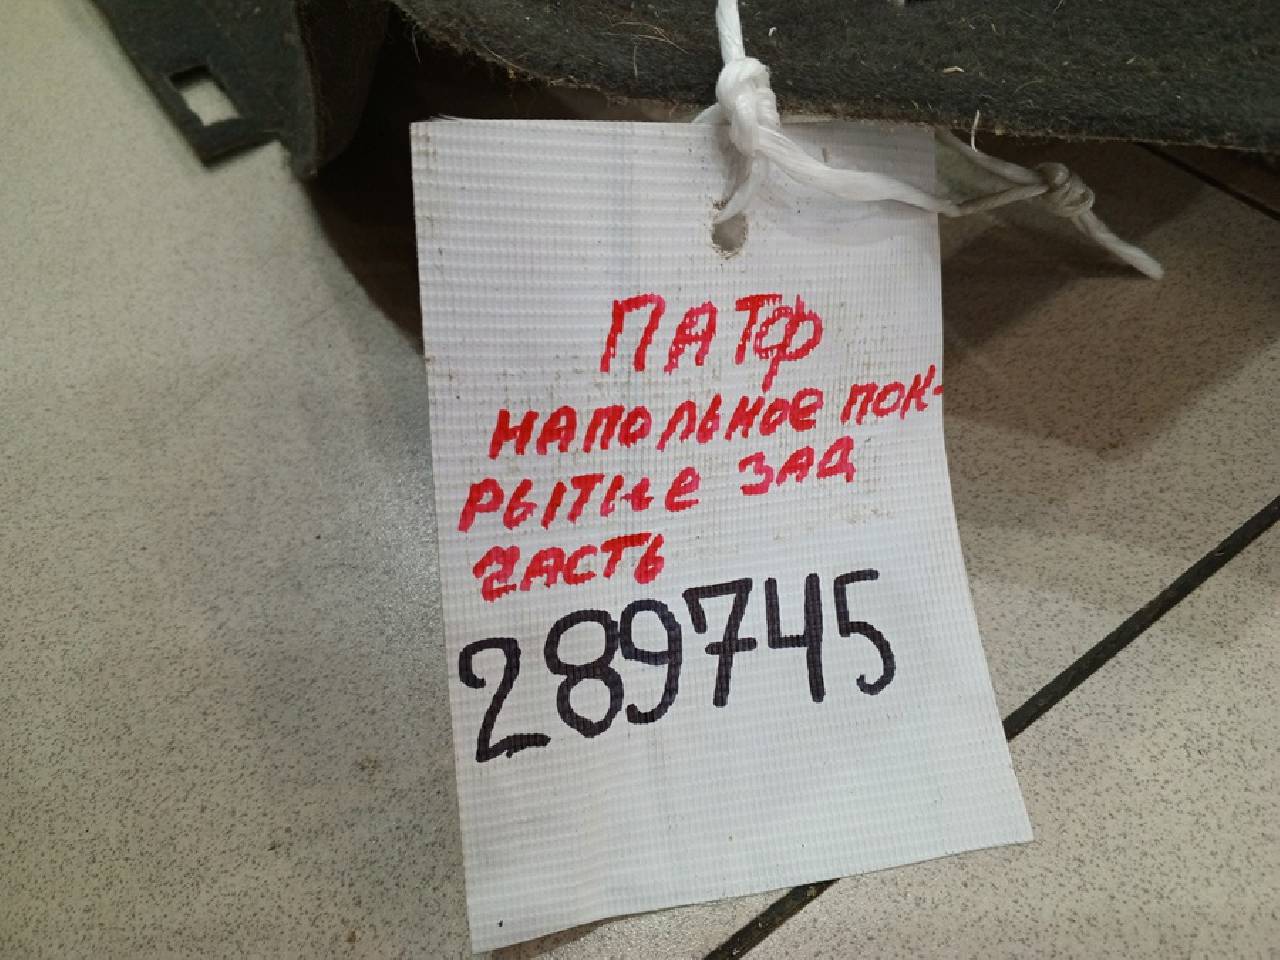 ПАТФ
НАПОЛЬНОЕ ПОК-
РЫТИЕ ЗАД
ЧАСТЬ
289745